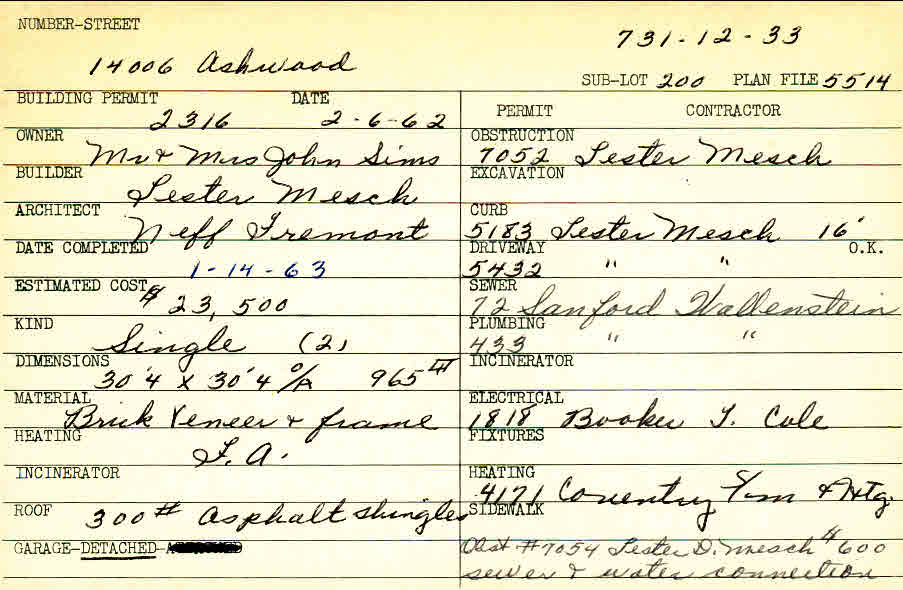 NUMBER-STREET
731-12-33
14006 Ashwood
SUB-LOT 200 PLAN FILE 5514
BUILDING PERMIT DATE
2316 2-6-62
OWNER
Mr & Mrs John Sims
BUILDER
Lester Mesch
ARCHITECT
Neff Fremont
DATE COMPLETED
1-14-63
ESTIMATED COST
$23,500
KIND
Single (2)
DIMENSIONS
30'4 X 30'4 O/A 965
MATERIAL
Brick Veneer & frame
HEATING
F.A.
INCINERATOR
ROOF 300# Asphalt shingles
GARAGE-DETACHED-
PERMIT CONTRACTOR
OBSTRUCTION
7052 Lester Mesch
EXCAVATION
CURB
5183 Lester Mesch 16'
DRIVEWAY O.K.
5432 " "
SEWER
72 Sanford Wallenstein
PLUMBING
433 " "
INCINERATOR
ELECTRICAL
1818 Booker T. Cole
FIXTURES
HEATING
4171 Coventry S/m & Htg.
SIDEWALK
Obst #7054 Lester D. Mesch #600
sewer & water connection